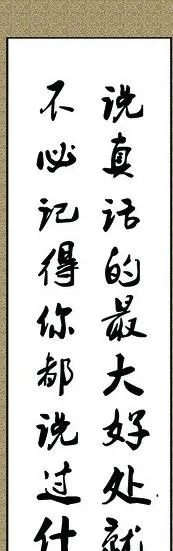 说真话的最大好处就
不必记得你都说过什